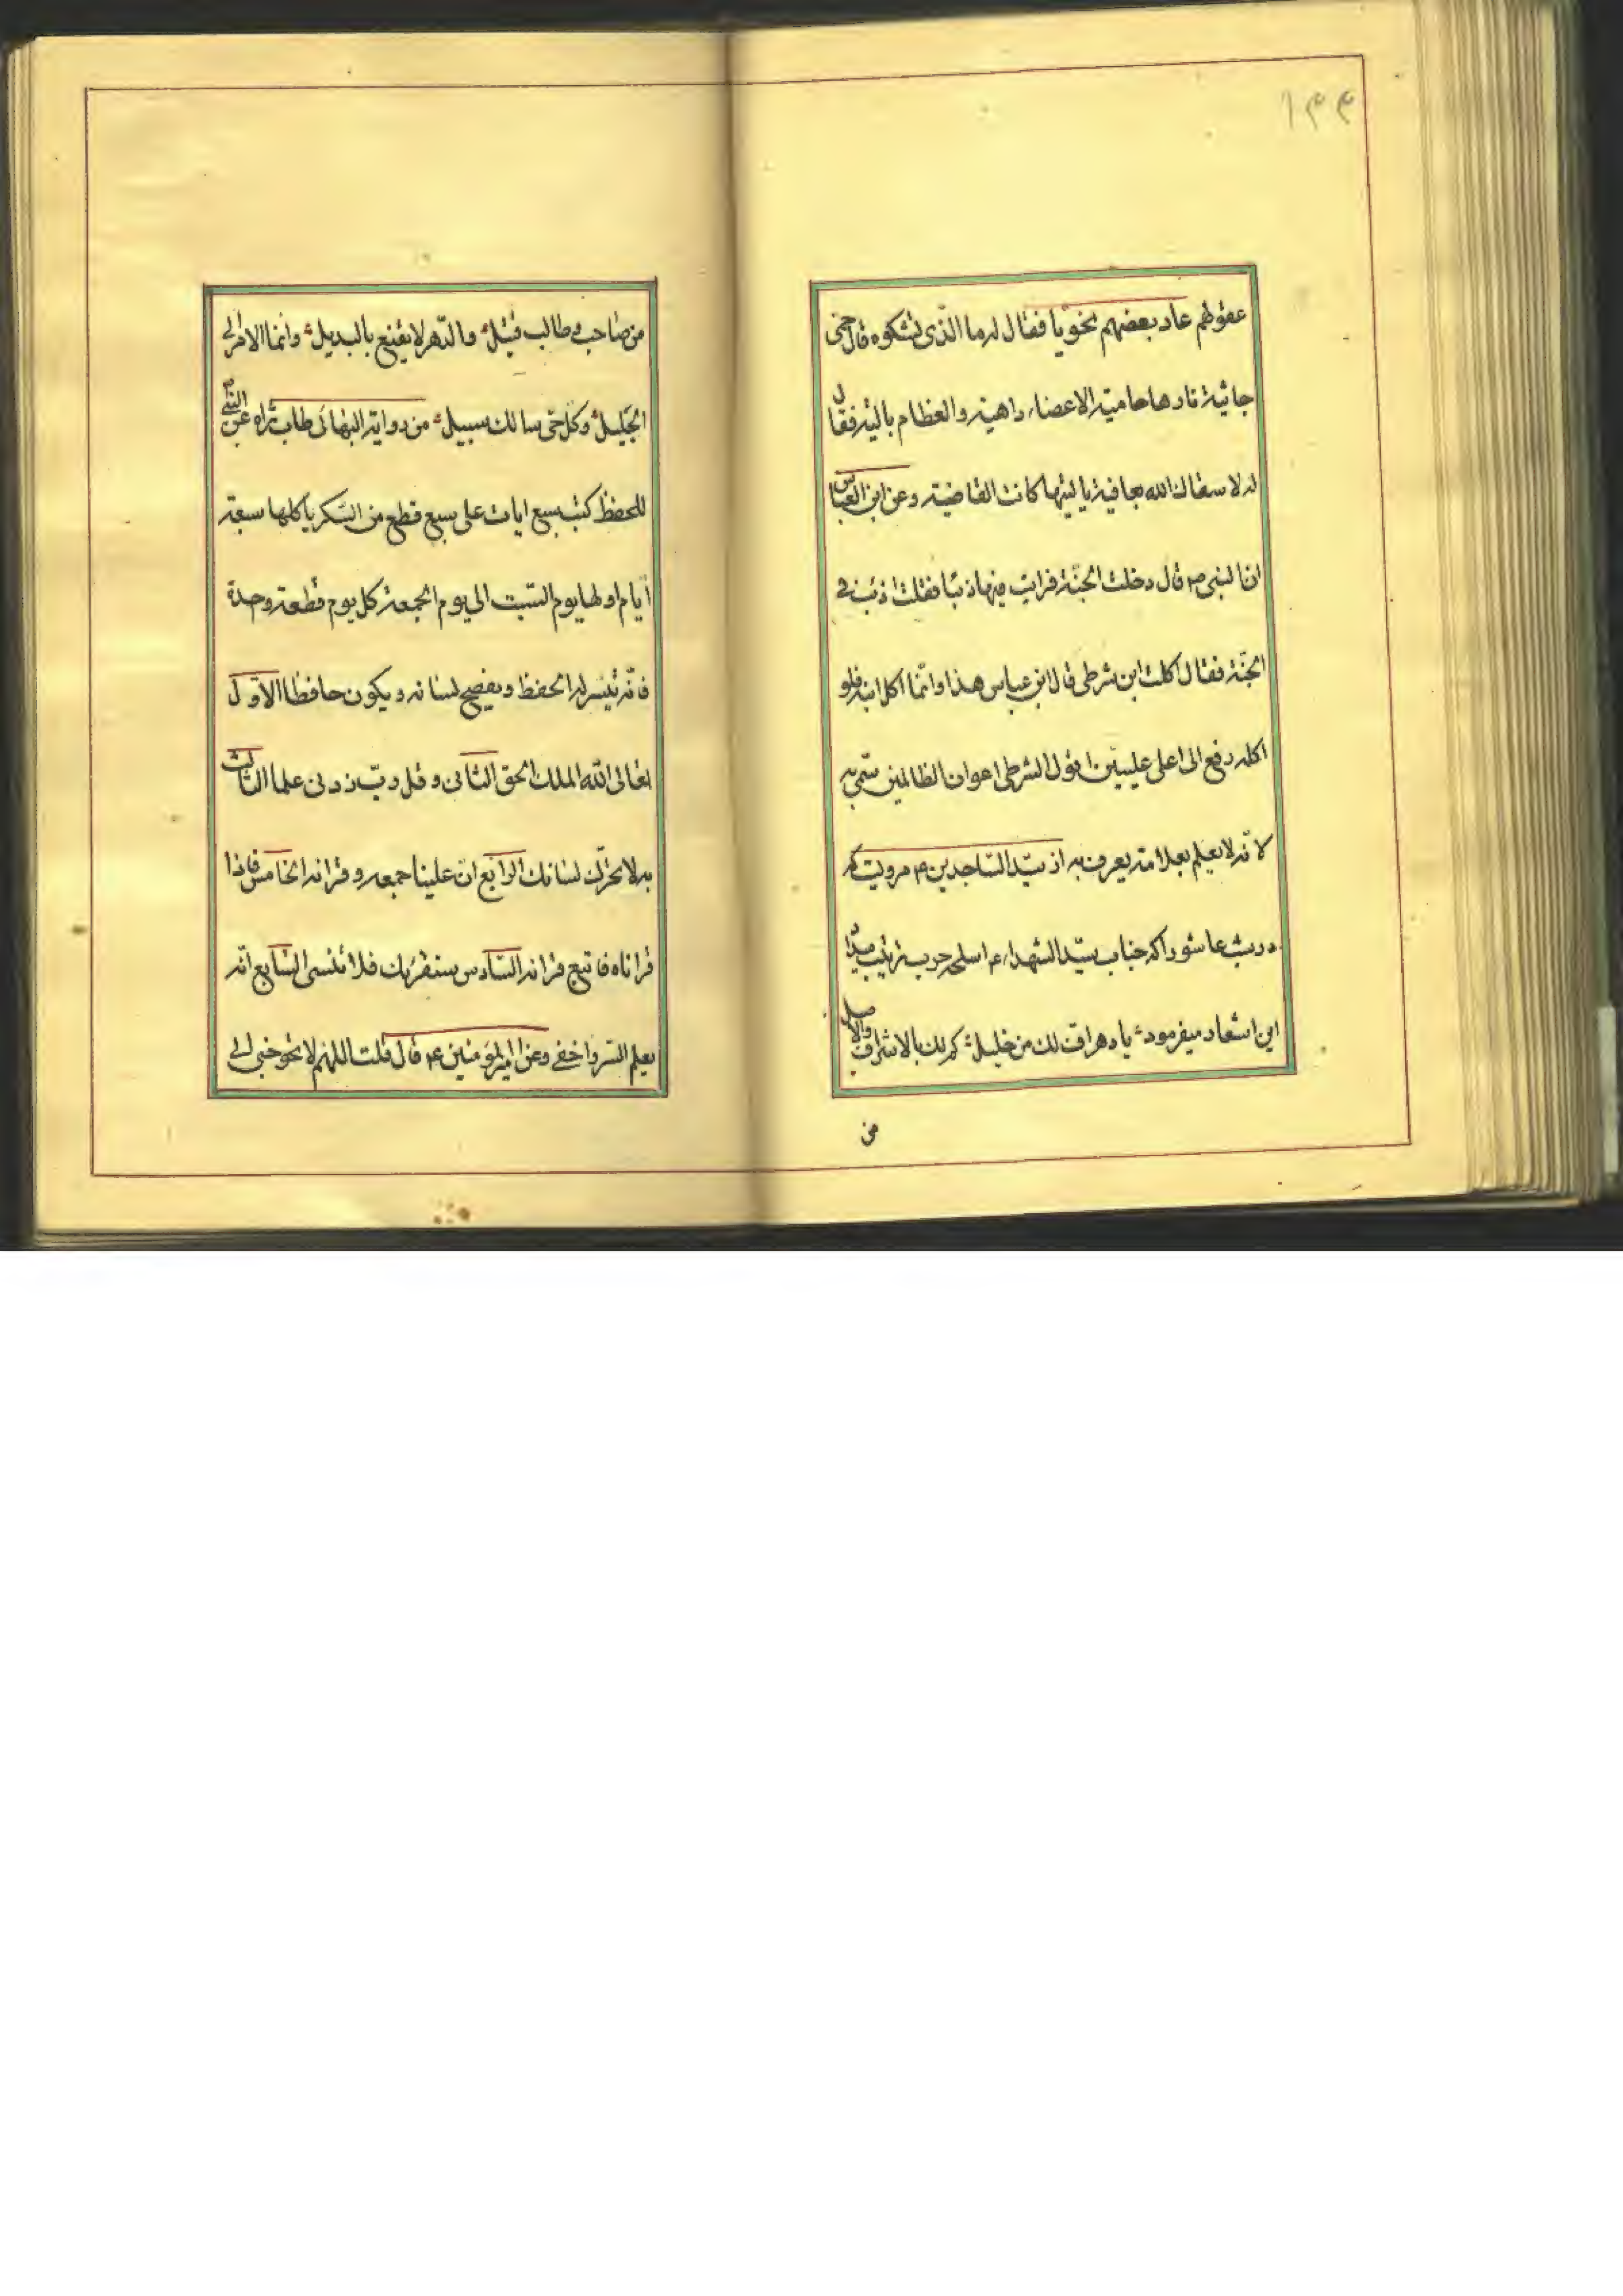 ۱۴۴
عقولهم عاد بعضهم نحویا فقال له ما الذی تشکوه قال حمی
جاثیة نارها حامیة الاعضاء واهیة والعظام بالیة فقال
له لا سقاك الله بعافیة یا لیتها کانت القاضیة وعن ابن العباس
ان النبی ص قال دخلت الجنّة فرایت فیها ذئبا فقلت اذئب فی
الجنّة فقال اکلت ابن شرطی قال ابن عباس هذا وانّما اکل ابنه فلو
اکله رفع الی اعلی علیین اقول الشرطی اعوان الظالمین سمّی به
لانّه لا یعلم بعلامة یعرف به از سیّد الساجدین ع مرویست که
در شب عاشورا که جناب سیّد الشهداء ع اسلحه حرب ترتیب میداد
این اشعار میفرمود یا دهر اف لك من خلیل کم لك بالاشراق والاصیل
من
من صاحب و طالب قتیل والدّهر لا یقنع بالبدیل وانما الامر الی
الجلیل وکل حی سالك سبیل من روایة البهائی طاب ثراه عن النبی ص
للحفظ کتب سبع ایات علی سبع قطع من السّکر یاکلها سبعة
ایام اولها یوم السّبت الی یوم الجمعة کل یوم قطعة وحدة
فانّه تیسر له الحفظ ویفصح لسانه ویکون حافظا الاوّل
تعالی الله الملك الحق الثانی وقل ربّ زدنی علما الثالث
به لا تحرّك لسانك الرابع انّ علینا جمعه وقرانه الخامس فاذا
قراناه فاتبع قرانه السّادس سنقرئك فلا تنسی السّابع انّه
یعلم السّر واخفی وعن امیر المؤمنین ع قال قلت اللهم لا تحوجنی الی